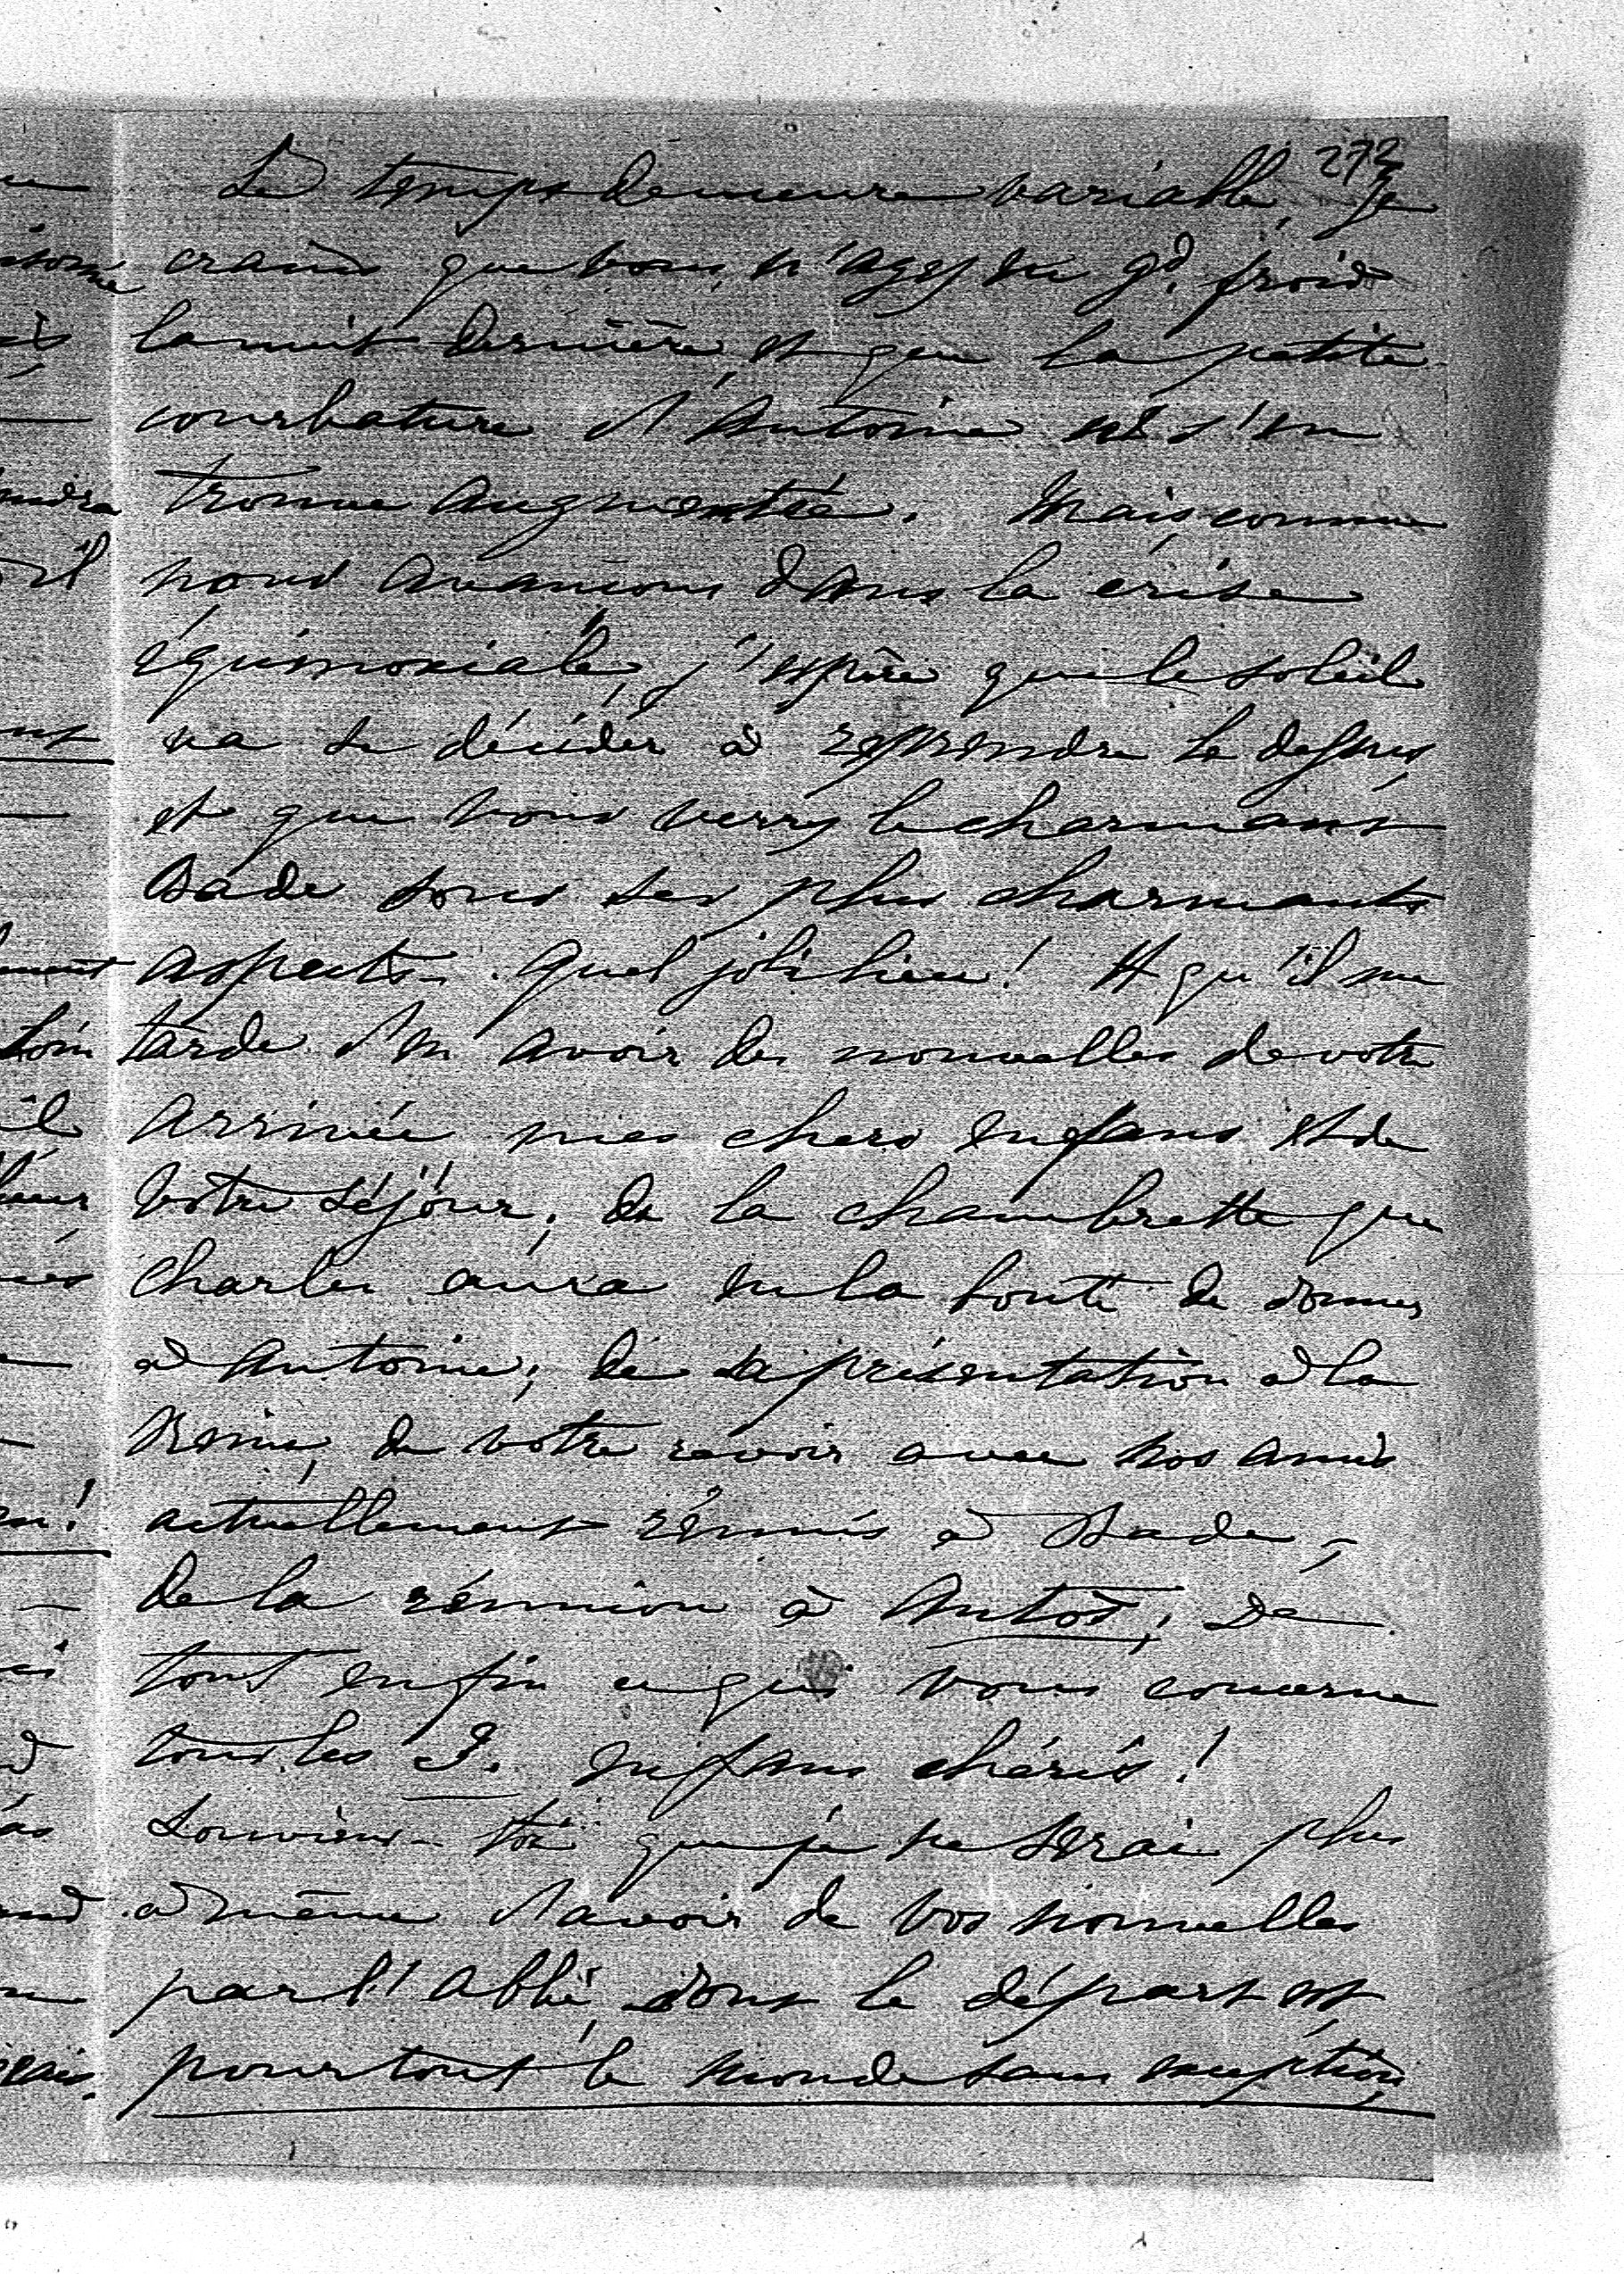 273
Le temps demeure variable, Je
crains que vous n'ayez eu gd. froid
la nuit dernière, et que la petite
courbature d'Antoine ne s'en
trouve augmentée. Mais comme
nous avancons dans la crise
équinoxiale, j'espère que le soleil
va se décider à reprendre le dessus,
et que vous verrez le charmant
Bade sous ses plus charmants
aspects. Quel joli lieu! Et qu'il me
tarde d'en avoir des nouvelles de votre
arrivée mes chers enfans et de
votre séjour; de la chambrette que
Charles aura eu la bonté de donner
à Antoine; de sa présentation à la
Reine, de votre revoir avec nos amis
actuellement réunis à Bade,
de la réunion à Antoi; de
tout enfin ce qui vous concerne
tous les 3. enfans chéris!
Souviens-toi que je ne serai plus
à même d'avoir de vos nouvelles
par l'abbé, dont le départ est
pour tout le monde sans exception,